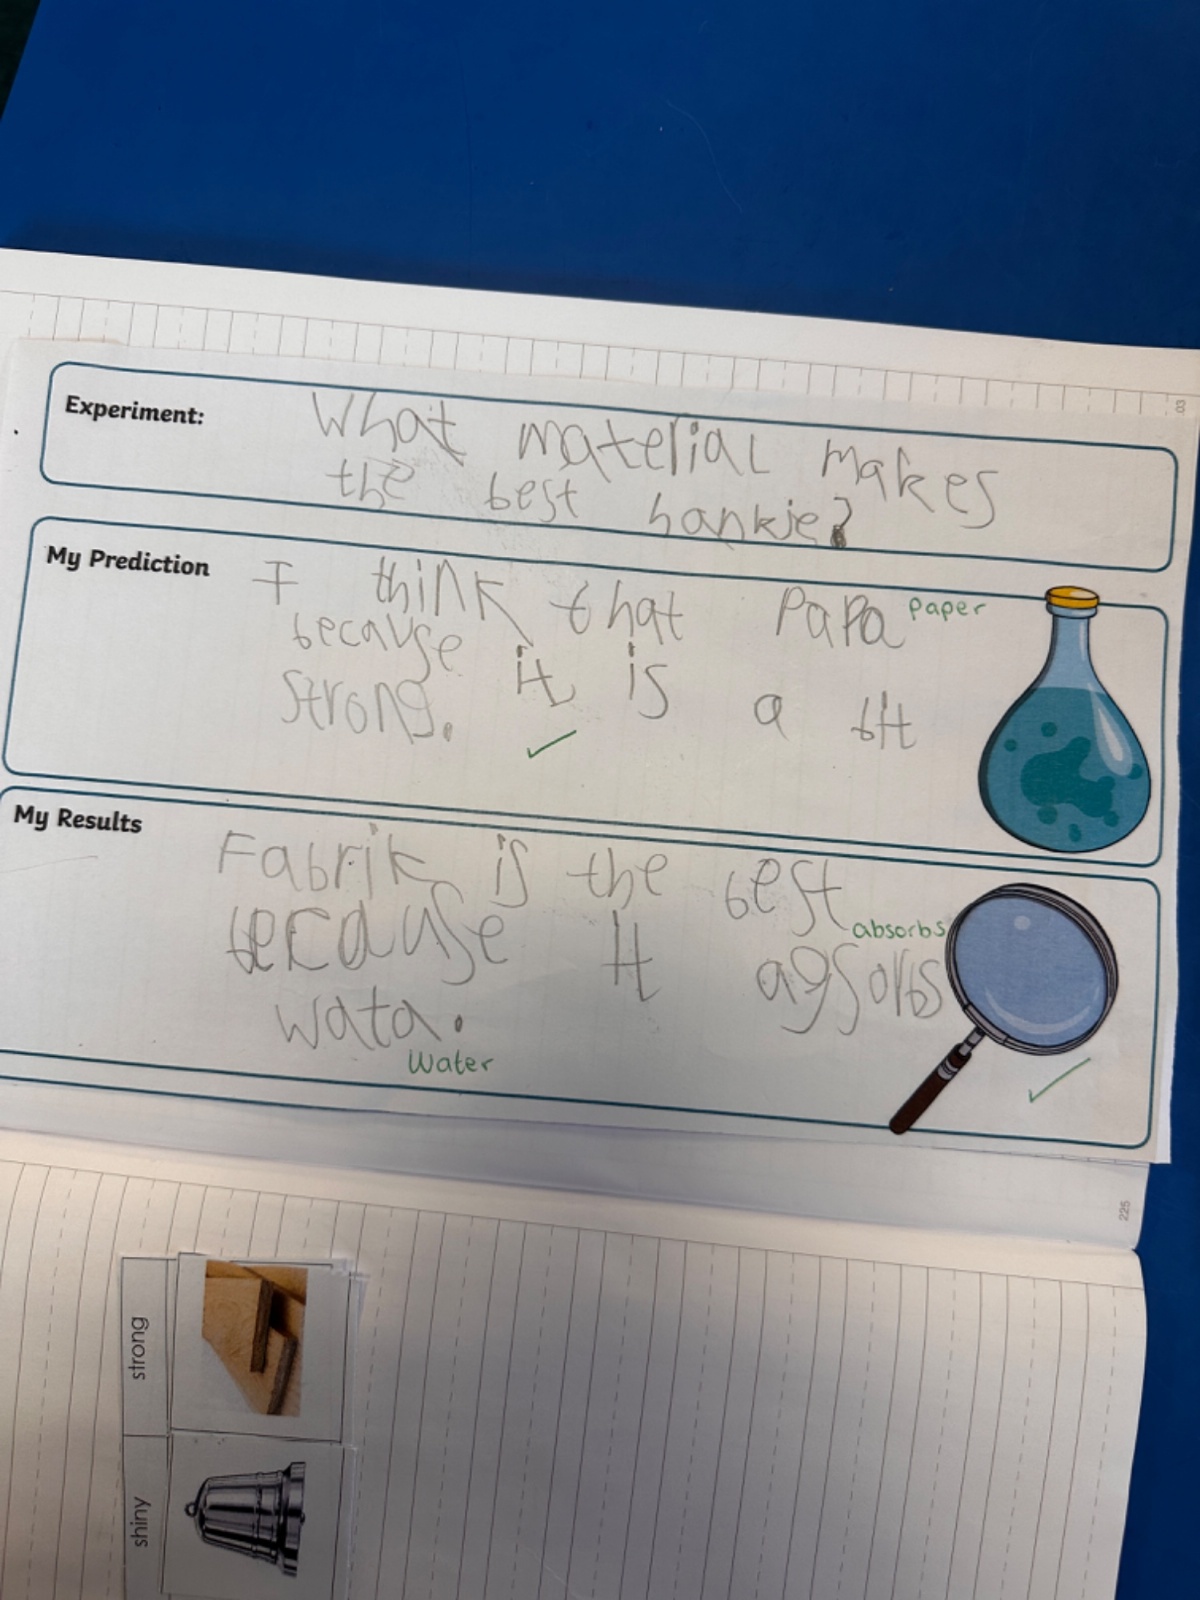 Experiment: What material makes
the best hankie?
My Prediction I think that Papa paper
because it is a bit
strong.
My Results Fabrik is the best
because It absorbs
agsorbs
wata.
Water
strong
shiny
225